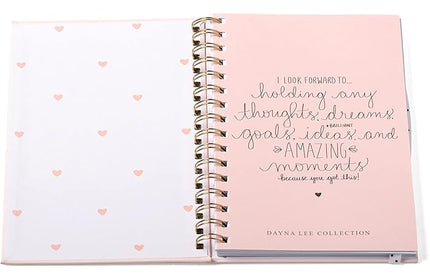 I LOOK FORWARD TO...
holding any
thoughts, dreams,
goals, BRILLIANT ideas, and
AMAZING
moments
because you got this!
DAYNA LEE COLLECTION